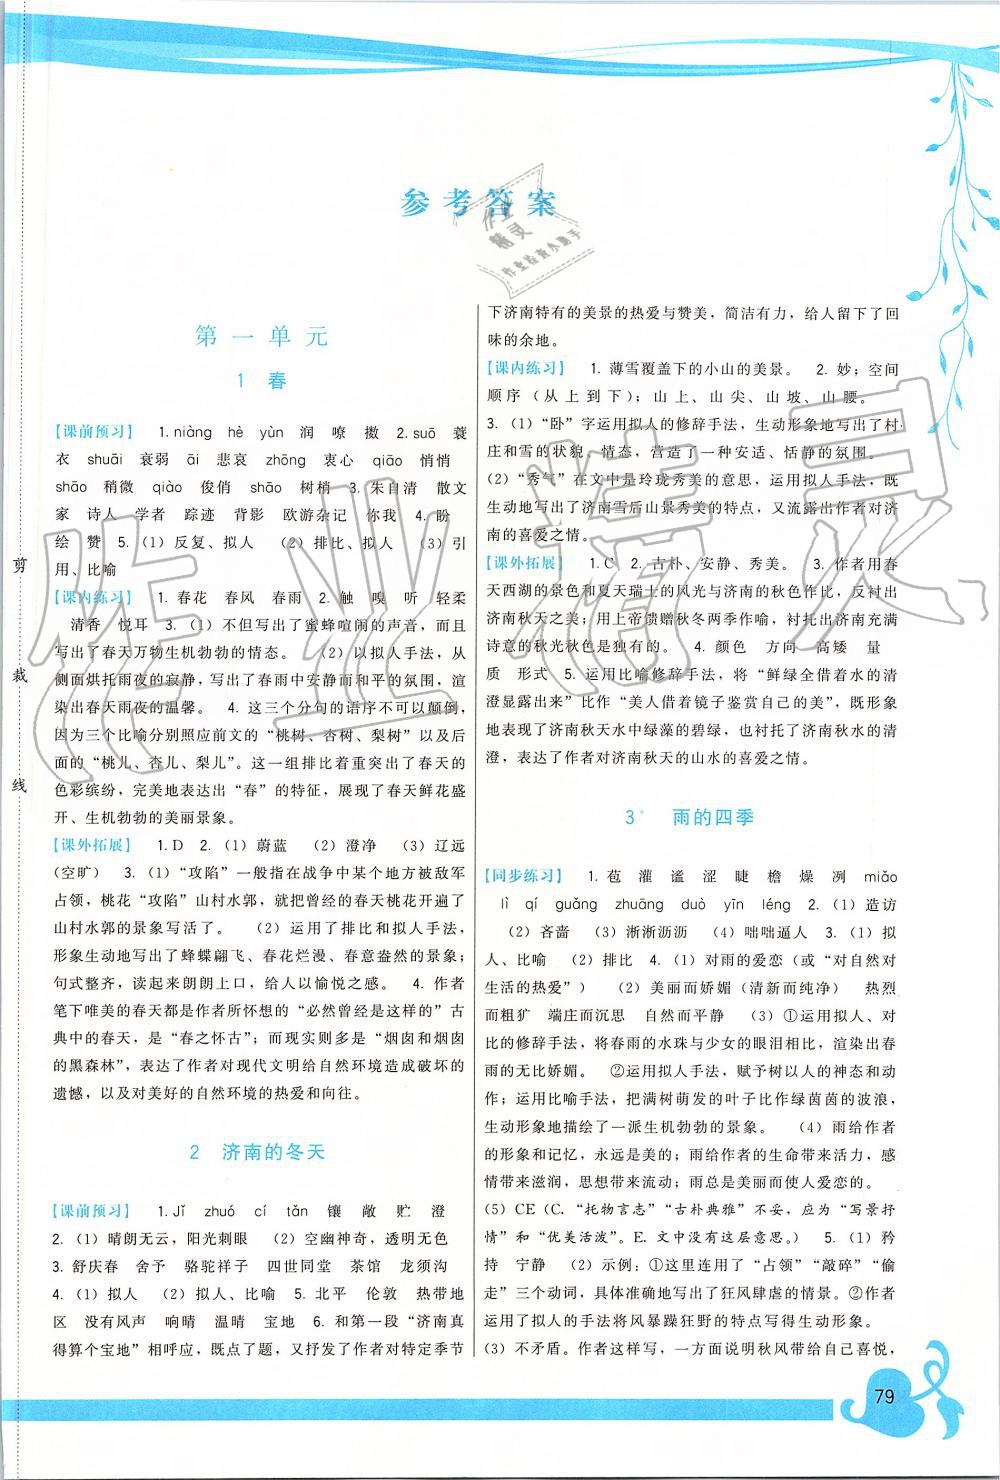 参考答案
第一单元
1 春
【课前预习】 1.niàng hè yùn 润 嘹 擞 2.suō 蓑
衣 shuāi 衰弱 āi 悲哀 zhōng 衷心 qiāo 悄悄
shāo 稍微 qiào 俊俏 shāo 树梢 3.朱自清 散文
家 诗人 学者 踪迹 背影 欧游杂记 你我 4.盼
绘 赞 5.（1）反复、拟人 （2）排比、拟人 （3）引
用、比喻
【课内练习】 1.春花 春风 春雨 2.触 嗅 听 轻柔
清香 悦耳 3.（1）不但写出了蜜蜂喧闹的声音，而且
写出了春天万物生机勃勃的情态。 （2）以拟人手法，从
侧面烘托雨夜的寂静，写出了春雨中安静而和平的氛围，渲
染出春天雨夜的温馨。 4.这三个分句的语序不可以颠倒，
因为三个比喻分别照应前文的“桃树、杏树、梨树”以及后
面的“桃儿、杏儿、梨儿”。这一组排比着重突出了春天的
色彩缤纷，完美地表达出“春”的特征，展现了春天鲜花盛
开、生机勃勃的美丽景象。
【课外拓展】 1.D 2.（1）蔚蓝 （2）澄净 （3）辽远
(空旷) 3.（1）“攻陷”一般指在战争中某个地方被敌军
占领，桃花“攻陷”山村水郭，就把曾经的春天桃花开遍了
山村水郭的景象写活了。 （2）运用了排比和拟人手法，
形象生动地写出了蜂蝶翩飞、春花烂漫、春意盎然的景象；
句式整齐，读起来朗朗上口，给人以愉悦之感。 4.作者
笔下唯美的春天都是作者所怀想的“必然曾经是这样的”古
典中的春天，是“春之怀古”；而现实则多是“烟囱和烟囱
的黑森林”，表达了作者对现代文明给自然环境造成破坏的
遗憾，以及对美好的自然环境的热爱和向往。
2 济南的冬天
【课前预习】 1.Jǐ zhuó cí tǎn 镶 敞 贮 澄
2.（1）晴朗无云，阳光刺眼 （2）空幽神奇，透明无色
3.舒庆春 舍予 骆驼祥子 四世同堂 茶馆 龙须沟
4.（1）拟人 （2）拟人、比喻 5.北平 伦敦 热带地
区 没有风声 响晴 温晴 宝地 6.和第一段“济南真
得算个宝地”相呼应，既点了题，又抒发了作者对特定季节
下济南特有的美景的热爱与赞美，简洁有力，给人留下了回
味的余地。
【课内练习】 1.薄雪覆盖下的小山的美景。 2.妙；空间
顺序（从上到下）；山上、山尖、山坡、山腰。
3.（1）“卧”字运用拟人的修辞手法，生动形象地写出了村
庄和雪的状貌、情态，营造了一种安适、恬静的氛围。
(2)“秀气”在文中是玲珑秀美的意思，运用拟人手法，既
生动地写出了济南雪后山景秀美的特点，又流露出作者对济
南的喜爱之情。
【课外拓展】 1.C 2.古朴、安静、秀美。 3.作者用春
天西湖的景色和夏天瑞士的风光与济南的秋色作比，反衬出
济南秋天之美；用上帝馈赠秋冬两季作喻，衬托出济南充满
诗意的秋光秋色是独有的。 4.颜色 方向 高矮 量
质 形式 5.运用比喻修辞手法，将“鲜绿全借着水的清
澄显露出来”比作“美人借着镜子鉴赏自己的美”，既形象
地表现了济南秋天水中绿藻的碧绿，也衬托了济南秋水的清
澄，表达了作者对济南秋天的山水的喜爱之情。
3* 雨的四季
【同步练习】 1.苞 灌 谧 涩 睫 檐 燥 冽 miǎo
lì qí guǎng zhuāng duò yīn léng 2.（1）造访
（2）吝啬 （3）淅淅沥沥 （4）咄咄逼人 3.（1）拟
人、比喻 （2）排比 4.（1）对雨的爱恋（或“对自然对
生活的热爱”） （2）美丽而娇媚（清新而纯净） 热烈
而粗犷 端庄而沉思 自然而平静 （3）①运用拟人、对
比的修辞手法，将春雨的水珠与少女的眼泪相比，渲染出春
雨的无比娇媚。 ②运用拟人手法，赋予树以人的神态和动
作；运用比喻手法，把树萌发的叶子比作绿茵茵的波浪，
生动形象地描绘了一派生机勃勃的景象。 （4）雨给作者
的形象和记忆，永远是美的；雨给作者的生命带来活力，感
情带来滋润，思想带来流动；雨总是美丽而使人爱恋的。
(5) CE（C.“托物言志”“古朴典雅”不妥，应为“写景抒
情”和“优美活泼”。E. 文中没有这层意思。） 5.（1）矜
持 宁静 （2）示例：①这里连用了“占领”“敲碎”“偷
走”三个动词，具体准确地写出了狂风肆虐的情景。②作者
运用了拟人的手法将风暴躁狂野的特点写得生动形象。
(3) 不矛盾。作者这样写，一方面说明秋风带给自己喜悦，
剪
裁
线
79
作业精灵
作业检查小助手
作业精灵